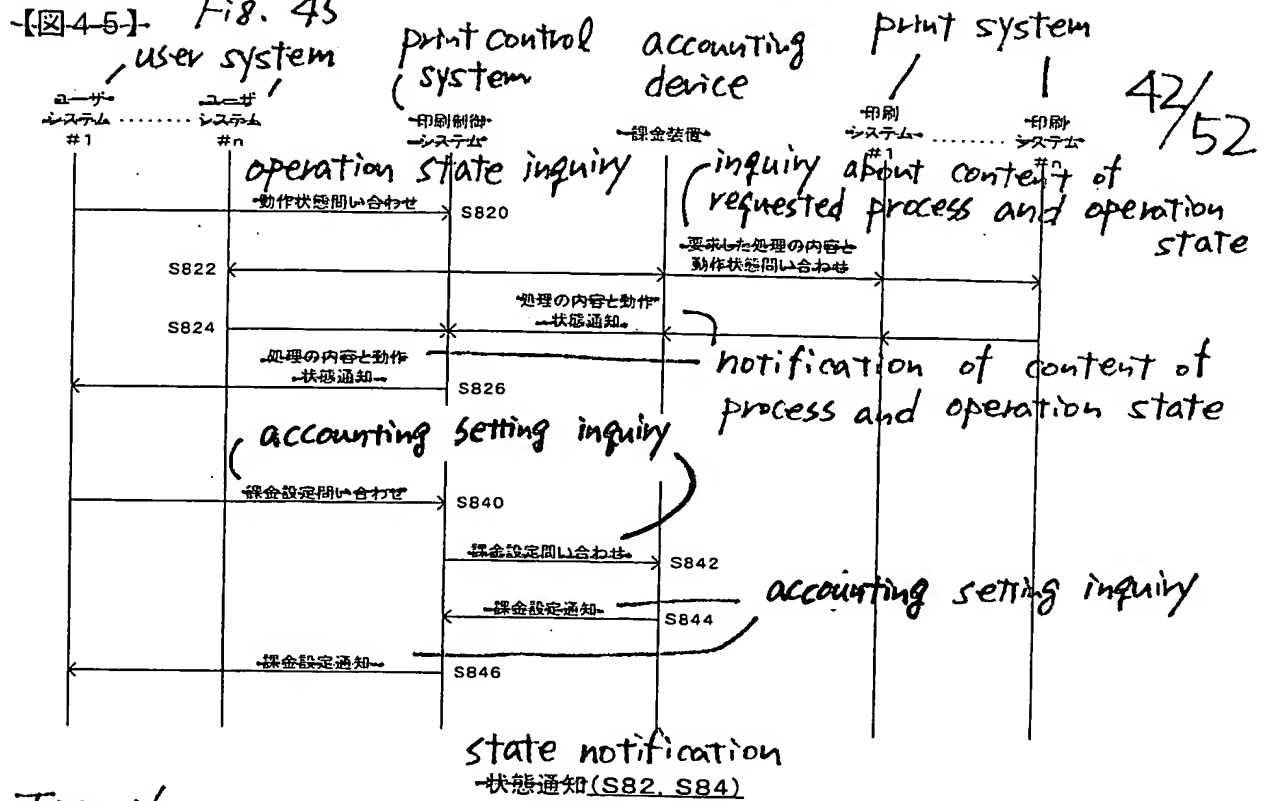 【図45】 Fig. 45
user system
print control system
accounting device
print system
42/52
ユーザシステム #1
ユーザシステム #n
印刷制御システム
課金装置
印刷システム #1
印刷システム #n
operation state inquiry
動作状態問い合わせ
S820
inquiry about content of
requested process and operation
state
S822
要求した処理の内容と
動作状態問い合わせ
S824
処理の内容と動作
状態通知
処理の内容と動作
状態通知
S826
notification of content of
process and operation state
accounting setting inquiry
課金設定問い合わせ
S840
課金設定問い合わせ
S842
accounting setting inquiry
課金設定通知
S844
課金設定通知
S846
state notification
状態通知(S82, S84)